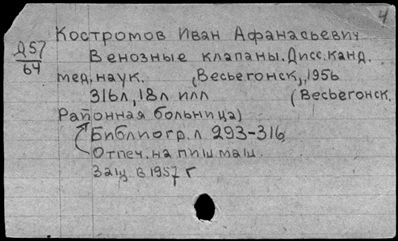 4
Костромов Иван Афанасьевич
Д57/64
Венозные клапаны. Дисс. канд.
мед. наук. Весьегонск, 1956
316л, 18л илл (Весьегонск.
Районная больница)
Библиогр. л. 293-316
Отпеч. на пиш. маш.
Защ. в 1957 г